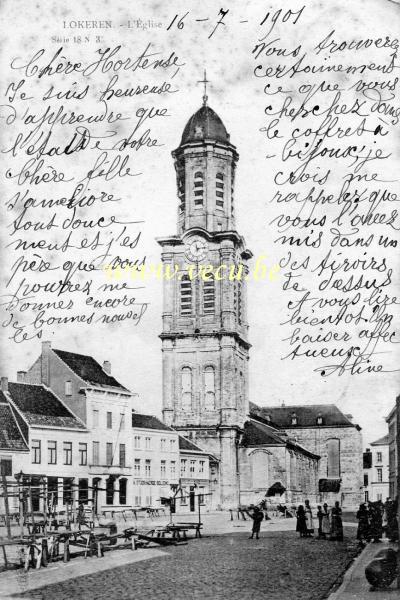 LOKEREN. - L'Église
Série 18 N 3.
16-7-1901
Chère Hortense,
Je suis heureuse
d'apprendre que
l'état de votre
Chère fille
s'améliore
tout douce
ment et j'es
père que vous
pourrez me
donner encore
de bonnes nouvel
les.
Vous trouverez
certainement
ce que vous
cherchez dans
le coffret à
bijoux, je
crois me
rappeler que
vous l'avez
mis dans un
des tiroirs
de dessus
A vous lire
bientôt. Un
baiser affec
tueux
Aline
www.vecu.be